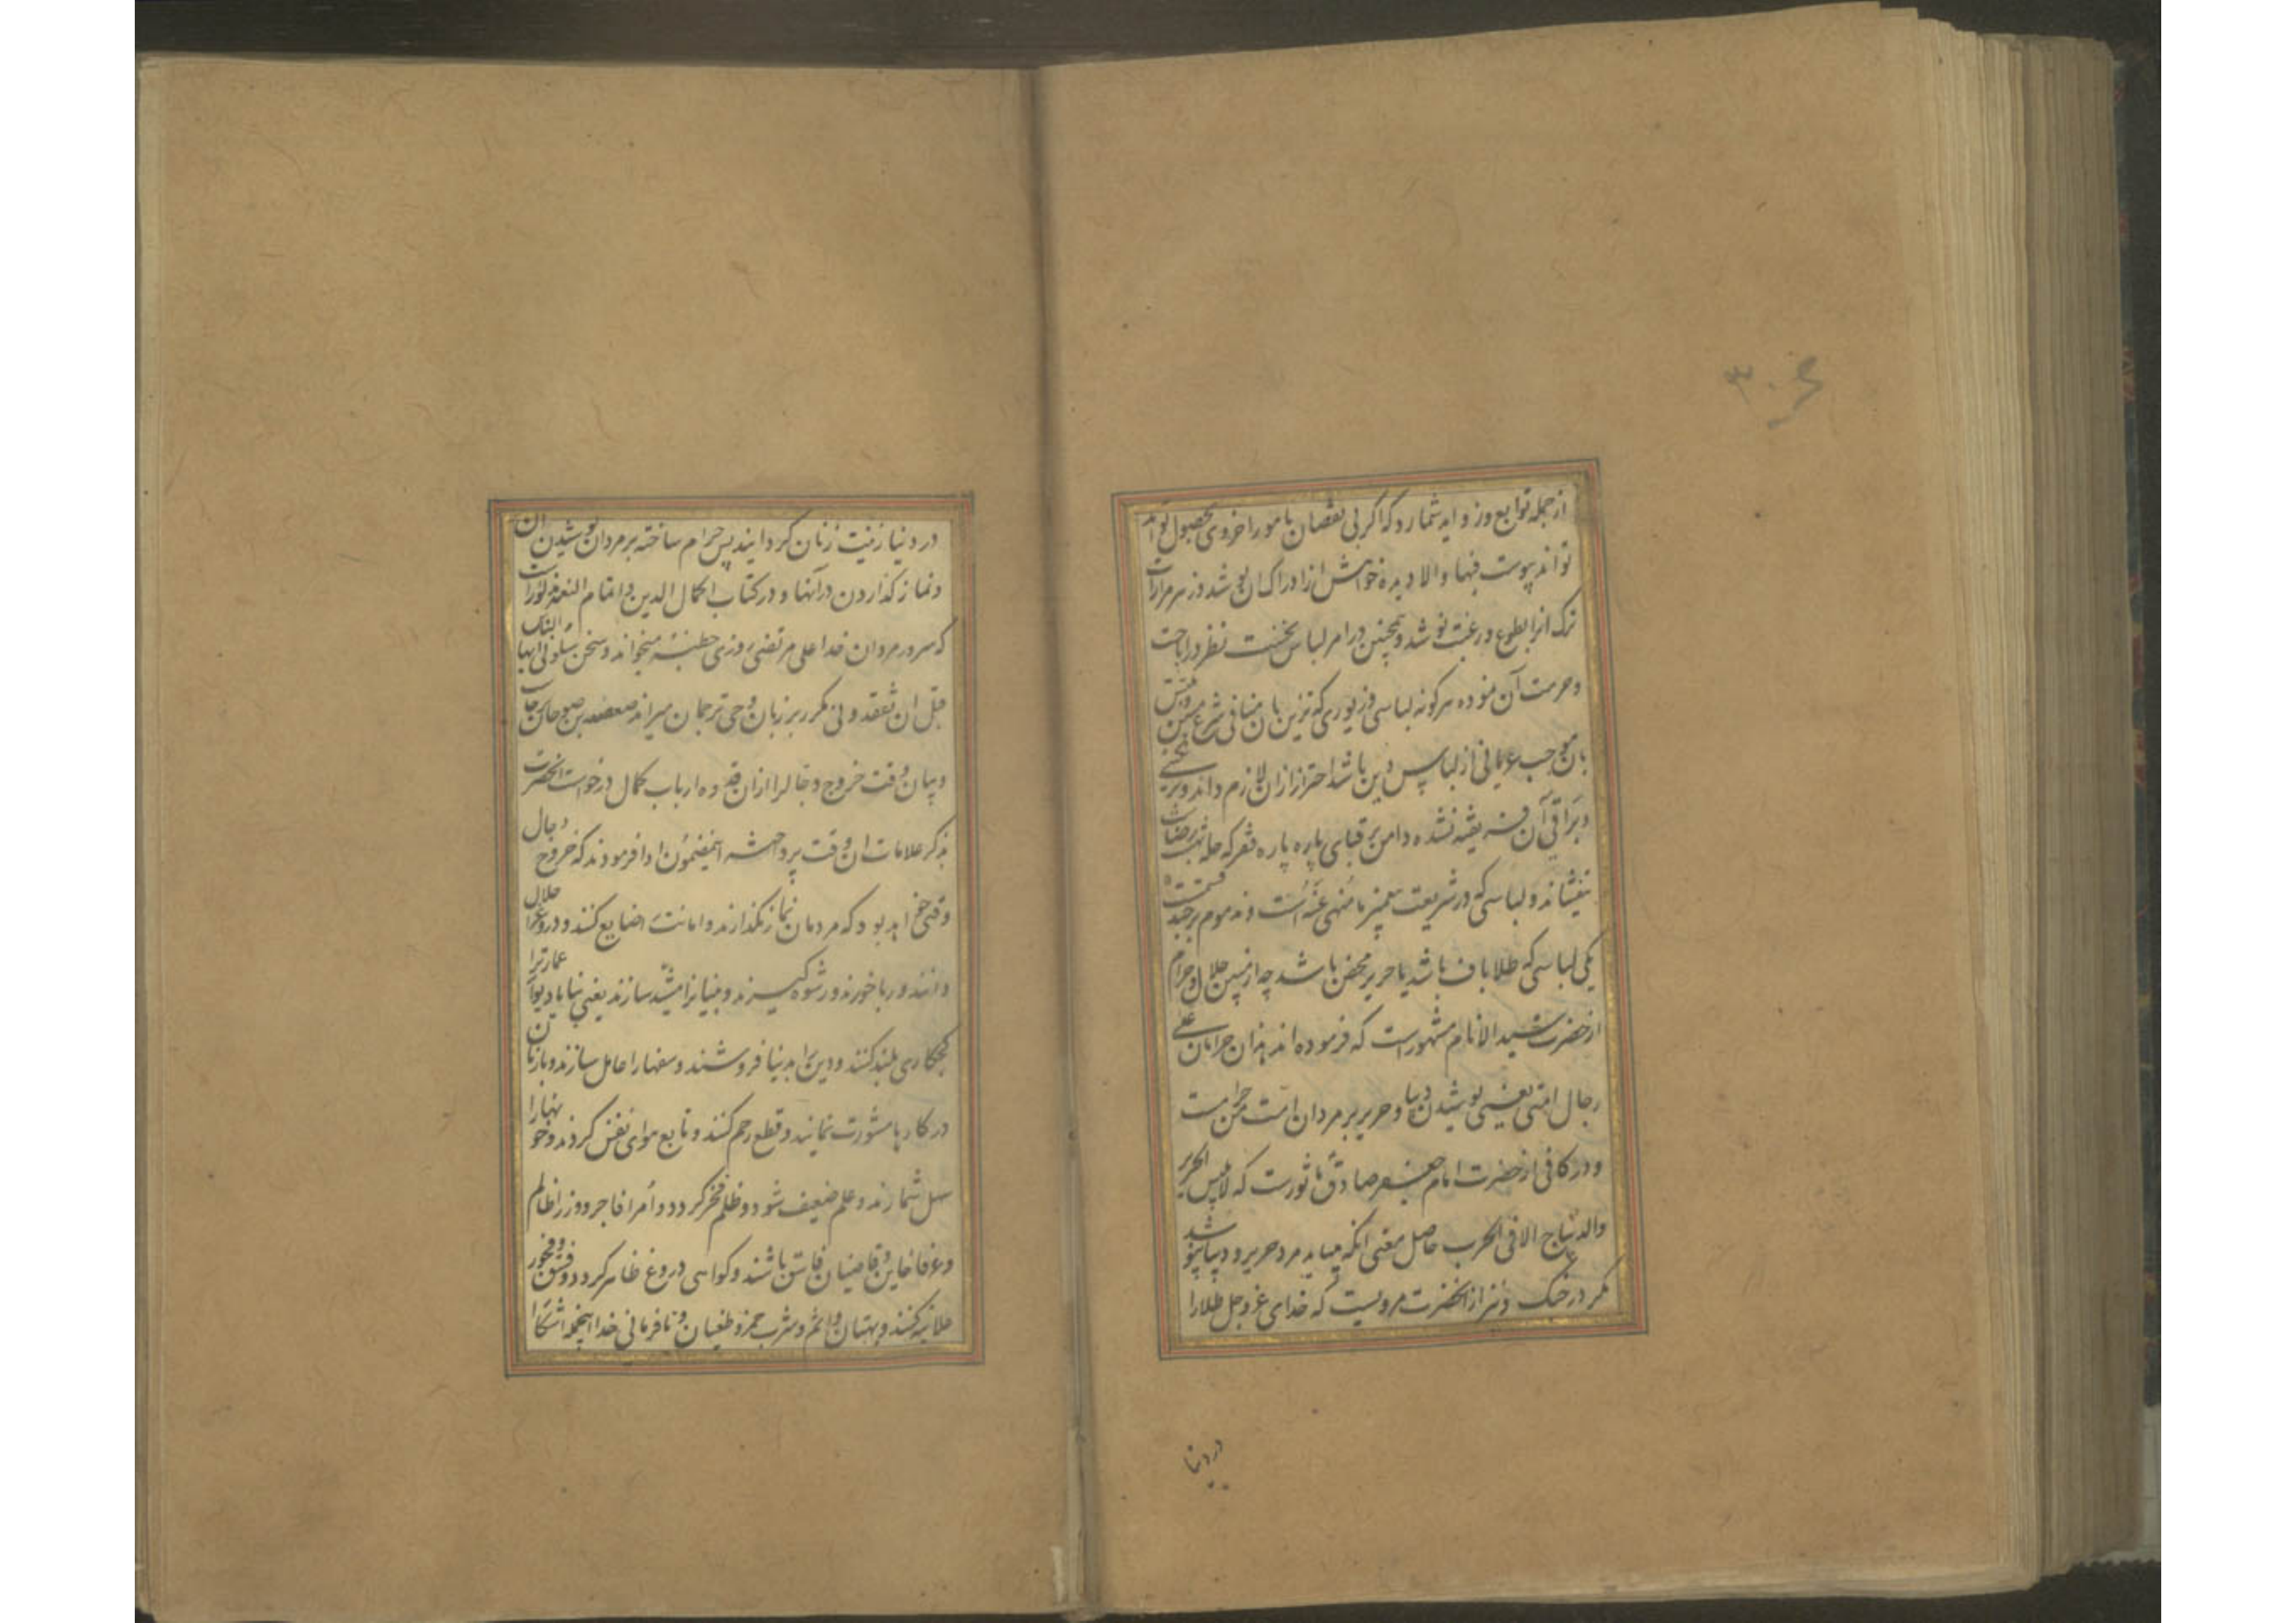 ۳۰۶
از جمله توابع و زواید شمارد که اگر بی نقصان بامور اخروی بحصول تواند
تواند پیوست فبها و الا دیده خواهش از ادراک آن پوشد و زهر مرارت
ترک آنرا بطوع و رغبت نوشد و همچنین در امر لباس نخست نظر در اباحت
و حرمت آن نموده هر گونه لباسی و زیوری که تزین بان منافی شرع
بان موجب عریانی از لباس دین باشد احتراز از ان لازم داند و
و براقی آن فریفته نشده دامن بر قبای پاره پاره فقر که حله
نیفشاند و لباسی که در شریعت پیغمبر ما منهی عنه است و مذموم بر چند قسمت
یکی لباسی که طلاباف باشد یا حریر محض باشد چه از مبین حلال و حرام
از حضرت سید الانام مشهور است که فرموده اند هذان حرامان علی
رجال امتی یعنی پوشیدن دیبا و حریر بر مردان امت من حرامست
و در کافی از حضرت امام جعفر صادق ماثورست که لا یلبس الحریر
و الدیباج الا فی الحرب حاصل معنی آنکه میباید مرد حریر و دیبا نپوشد
مگر در جنگ و نیز از آنحضرت مرویست که خدای عز و جل طلا را
در دنیا
در دنیا زینت زنان گردانیده پس حرام ساخته بر مردان پوشیدن آن
و نماز گذاردن در آنها و در کتاب اکمال الدین و اتمام النعمه
که سرور مردان خدا علی مرتضی روزی خطبه میخواند و سخن سلونی ایها الناس
قبل ان تفقدونی مکرر بر زبان وحی ترجمان میراند صعصعه بن صوحان
و بیان وقت خروج دجال را از ان قدوه ارباب کمال درخواست آنحضرت
بذکر علامات ان وقت پرداخته این مضمون ادا فرمودند که خروج دجال
وقتی خواهد بود که مردمان نماز نگذارند و امانت ضایع کنند و دروغ را حلال
دانند و ربا خورند و رشوه گیرند و بنیانرا مشید سازند یعنی بنای عمارت را
گچکاری بلند کنند و دین را بدنیا فروشند و سفها را عامل سازند و با زنان
در کارها مشورت نمایند و قطع رحم کنند و تابع هوای نفس گردند و خونها را
سهل شمارند و علم ضعیف شود و ظلم فخر گردد و امرا فاجر و وزرا ظالم
و عرفا خاین و قاضیان فاسق باشند و گواهی دروغ ظاهر گردد و فسق و فجور
علانیه کنند و بهتان و اثم و شرب خمر و طغیان و نافرمانی خدا